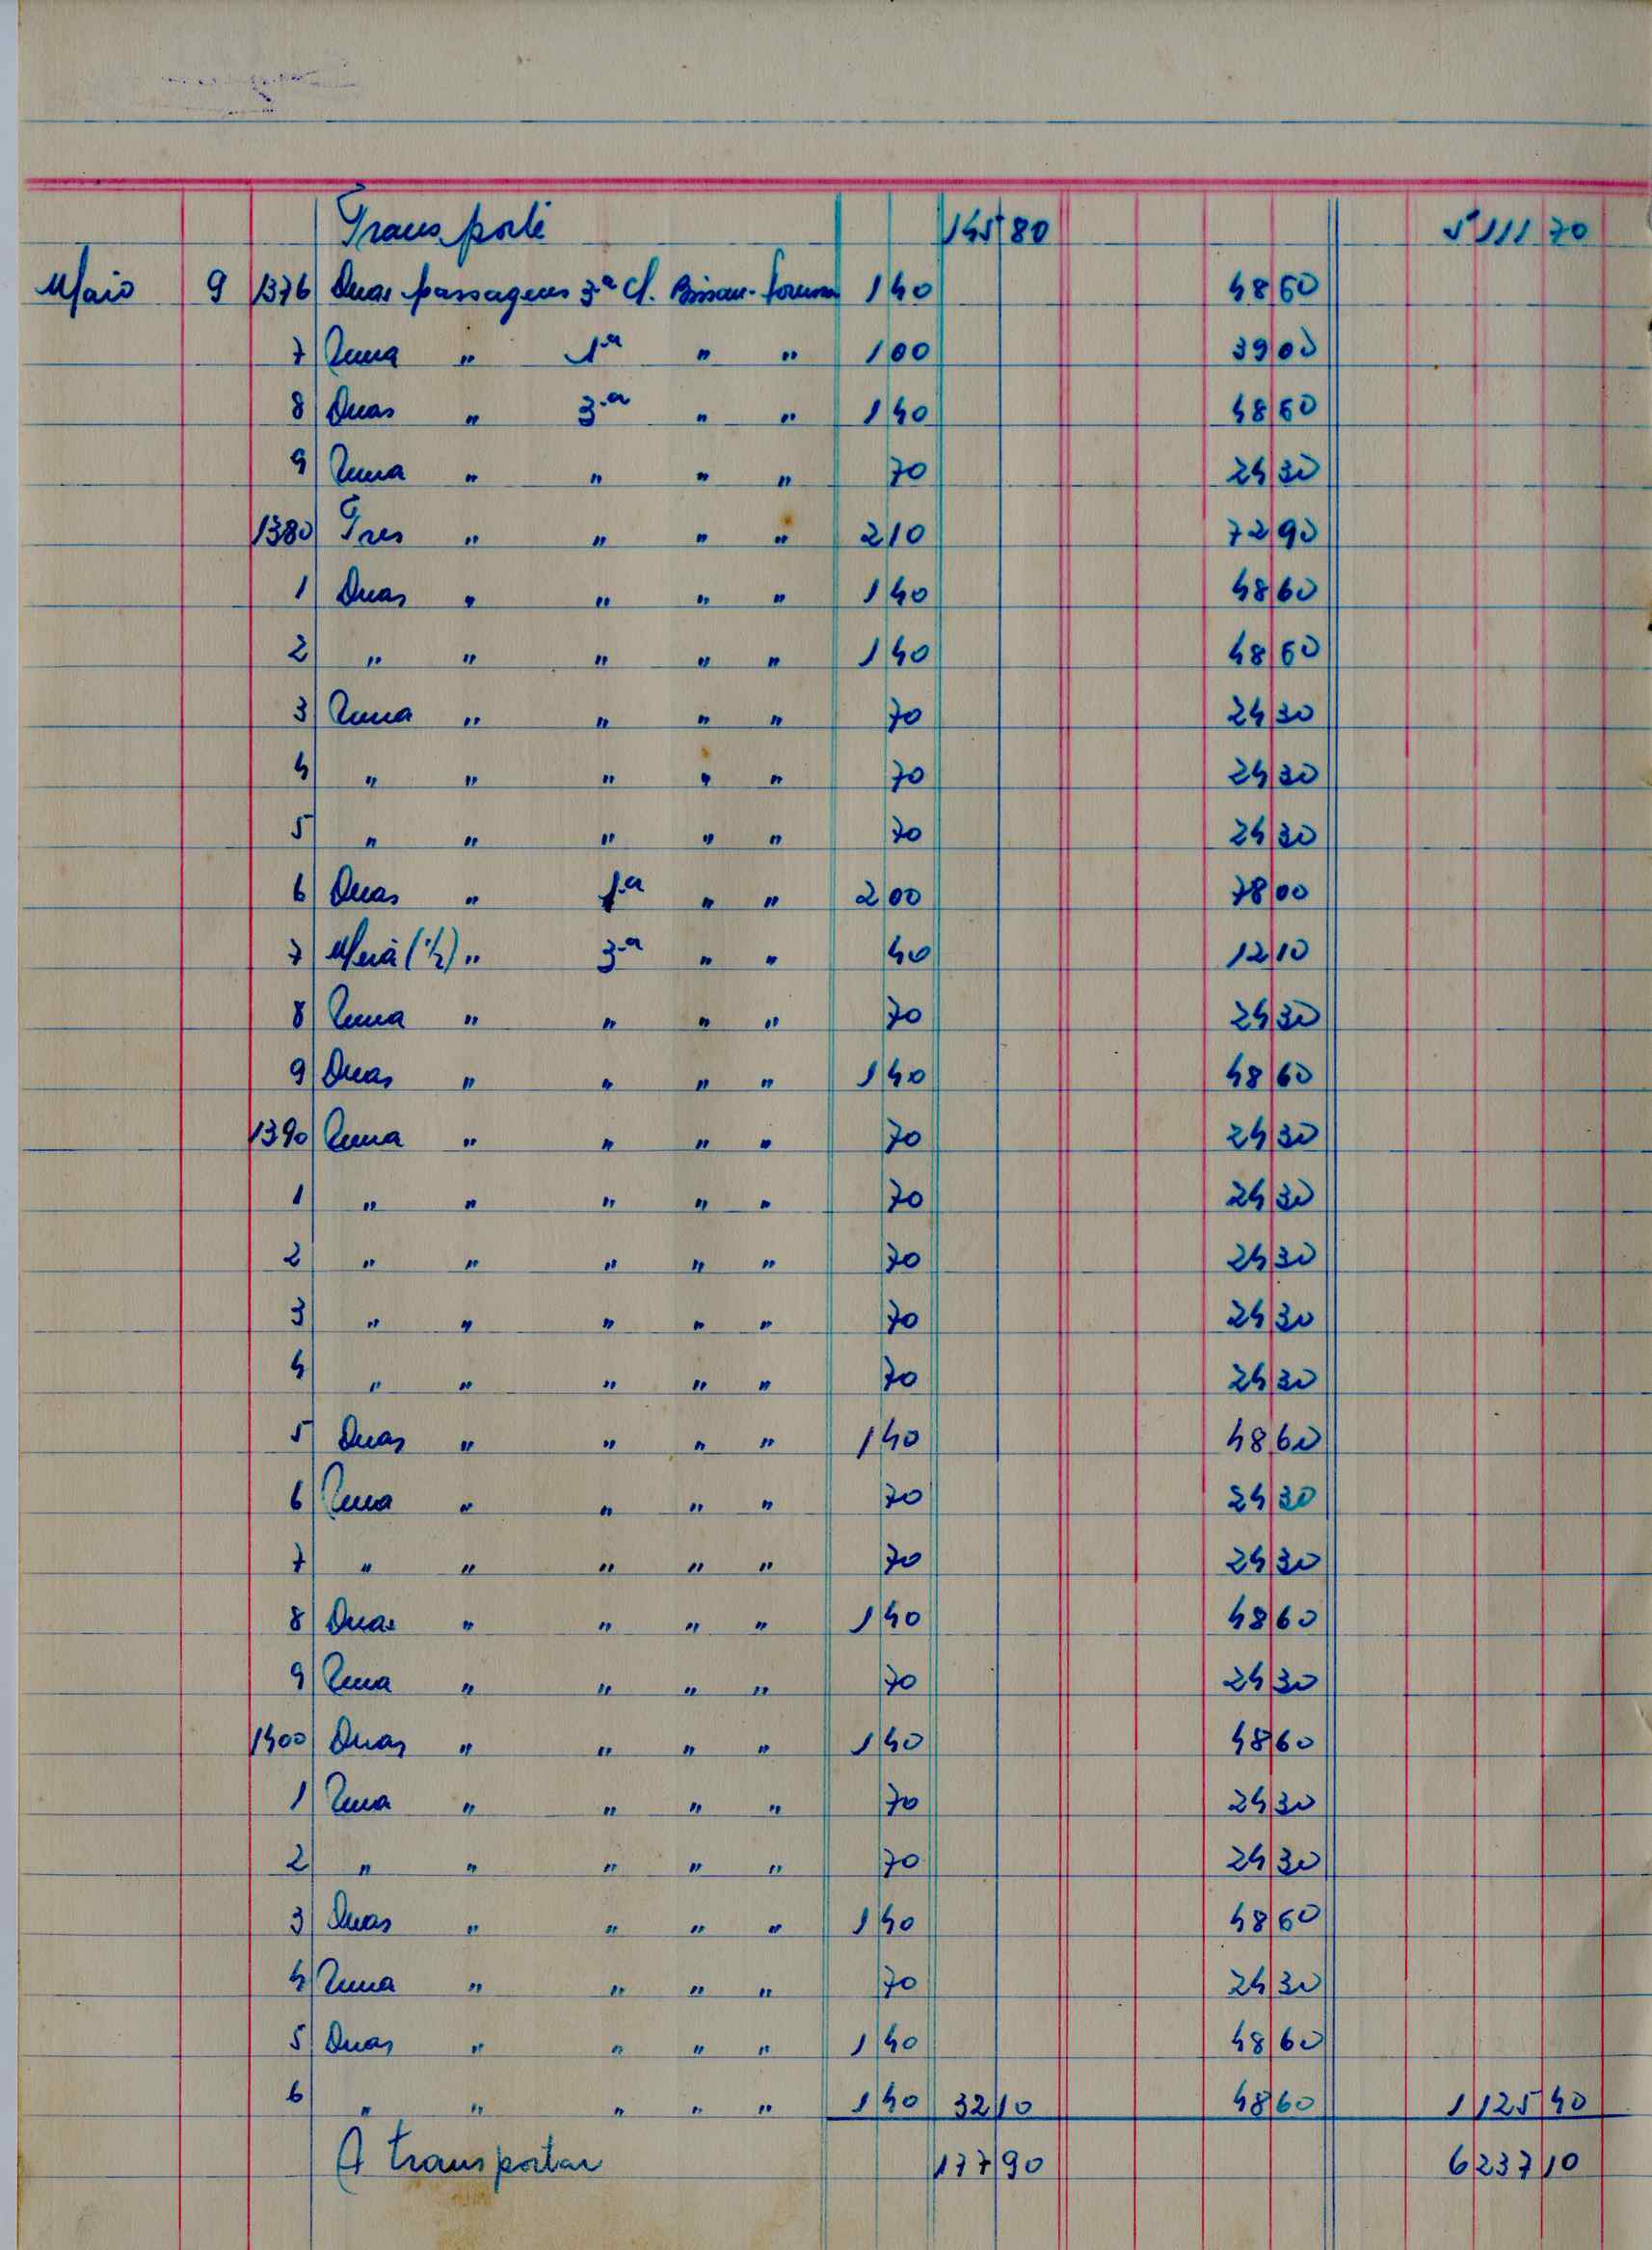 Transporte 145 80 5 111 70
Maio 9 1376 Duas passagens 3.ª Cl. Bissau- 1 40 48 60
7 Uma " 1ª " " 1 00 39 00
8 Duas " 3.ª " " 1 40 48 60
9 Uma " " " " 70 24 30
1380 Tres " " " " 2 10 72 90
1 Duas " " " " 1 40 48 60
2 " " " " " 1 40 48 60
3 Uma " " " " 70 24 30
4 " " " " " 70 24 30
5 " " " " " 70 24 30
6 Duas " 1.ª " " 2 00 78 00
7 Meia (1/2) " 3.ª " " 40 12 10
8 Uma " " " " 70 24 30
9 Duas " " " " 1 40 48 60
1390 Uma " " " " 70 24 30
1 " " " " " 70 24 30
2 " " " " " 70 24 30
3 " " " " " 70 24 30
4 " " " " " 70 24 30
5 Duas " " " " 1 40 48 60
6 Uma " " " " 70 24 30
7 " " " " " 70 24 30
8 Duas " " " " 1 40 48 60
9 Uma " " " " 70 24 30
1400 Duas " " " " 1 40 48 60
1 Uma " " " " 70 24 30
2 " " " " " 70 24 30
3 Duas " " " " 1 40 48 60
4 Uma " " " " 70 24 30
5 Duas " " " " 1 40 48 60
6 " " " " " 1 40 32 10 48 60 1 125 40
A transportar 177 90 6 237 10